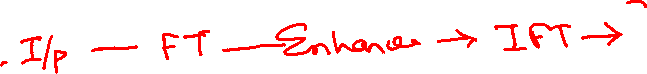 I/p — FT — Enhance → IFT →